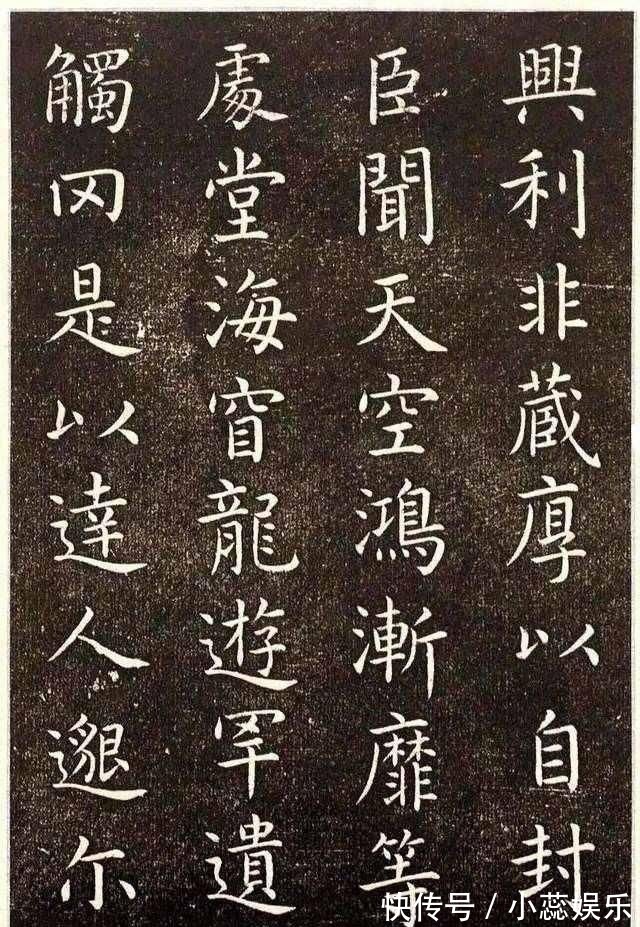 興利非藏厚以自封
臣聞天空鴻漸靡
處堂海窅龍遊罕遺
觸网是以達人邈尒
快传号/小蕊娱乐